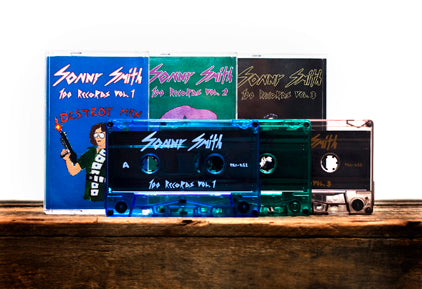 Sonny Smith
100 Records Vol. 1
DESTROY MEN
Sonny Smith
100 Records Vol. 2
Sonny Smith
100 Records Vol. 3
Sonny Smith
A
100 Records Vol. 1